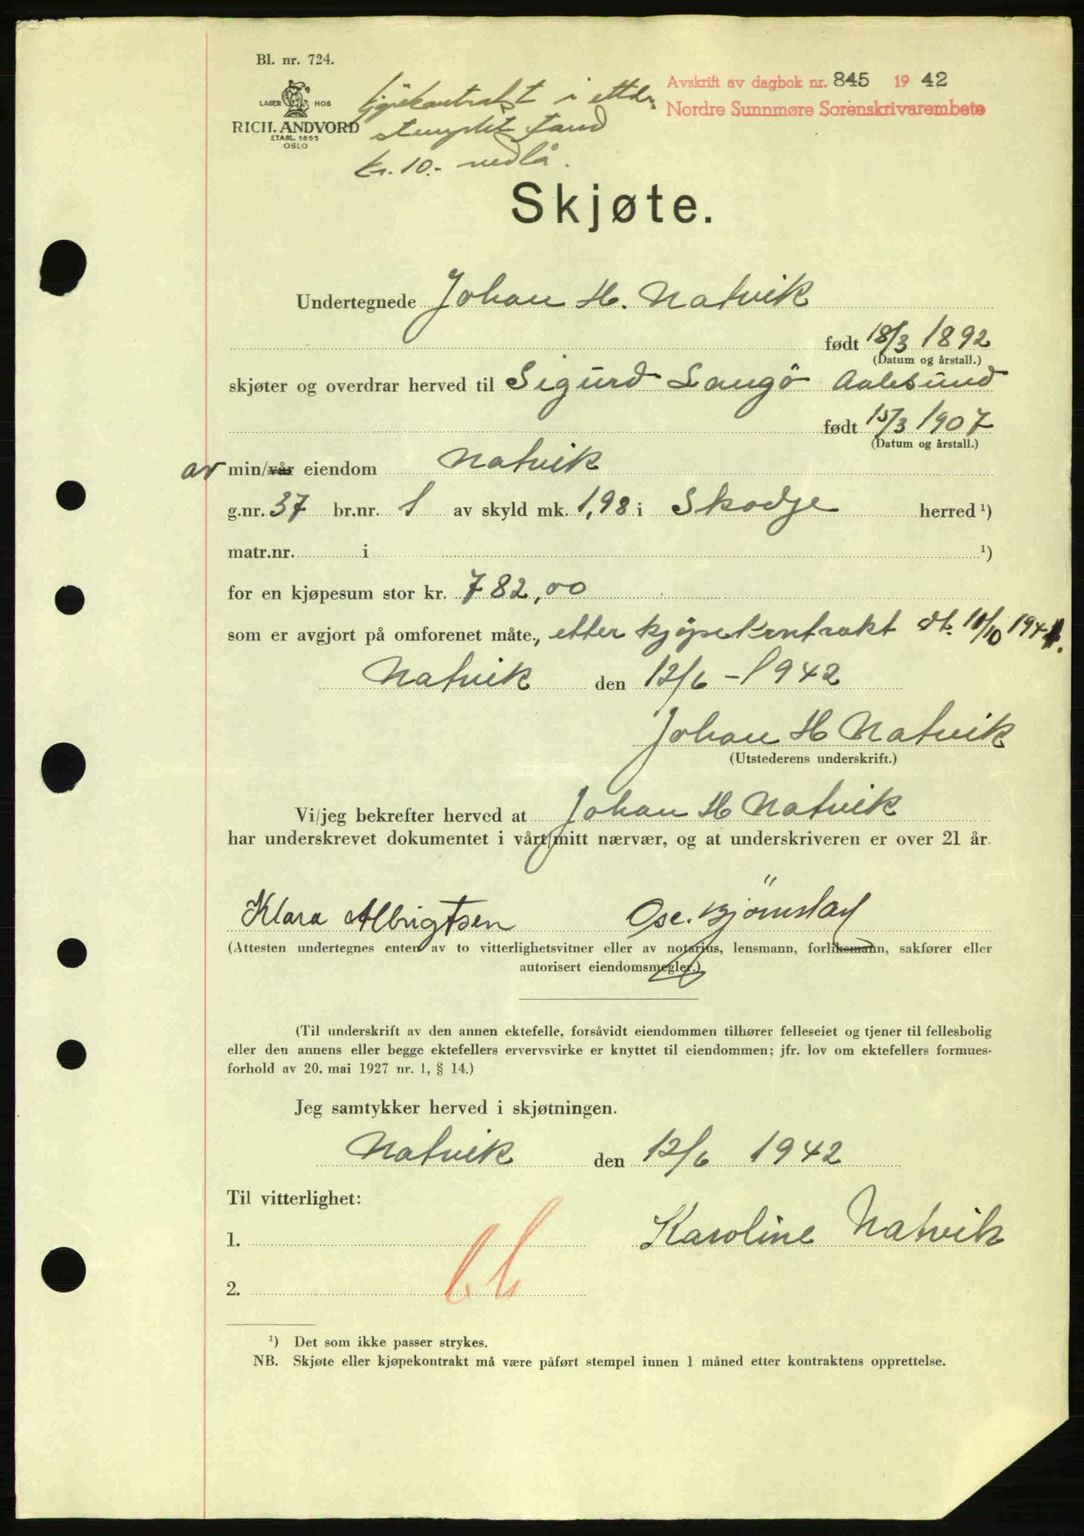 Bl. nr. 724.
LAGER HOS
RICH. ANDVORD
ETABL. 1865
OSLO
kjøpekontrakt i ettdr.
stemplet stand
kr. 10.- vedlå.
Avskrift av dagbok nr. 845 1942
Nordre Sunnmøre Sorenskrivarembete
Skjøte.
Undertegnede Johan H. Natvik
født 18/3 1892
(Datum og årstall.)
skjøter og overdrar herved til Sigurd Langö Aalesund
født 15/3 1907
(Datum og årstall.)
av min/vår eiendom Natvik
g.nr. 37 br.nr. 1 av skyld mk. 1,98 i Skodje herred ¹)
matr.nr. i ¹)
for en kjøpesum stor kr. 782,00
som er avgjort på omforenet måte., etter kjöpekontrakt dt. 10/10 1941.
Natvik den 12/6 - 1942
Johan H Natvik
(Utstederens underskrift.)
Vi/jeg bekrefter herved at Johan H Natvik
har underskrevet dokumentet i vårt/mitt nærvær, og at underskriveren er over 21 år.
Klara Albrigtsen Osc. Bjömstad
(Attesten undertegnes enten av to vitterlighetsvitner eller av notarius, lensmann, forliksmann, sakfører eller
autorisert eiendomsmegler.)
(Til underskrift av den annen ektefelle, forsåvidt eiendommen tilhører felleseiet og tjener til fellesbolig
eller den annens eller begge ektefellers ervervsvirke er knyttet til eiendommen; jfr. lov om ektefellers formues-
forhold av 20. mai 1927 nr. 1, § 14.)
Jeg samtykker herved i skjøtningen.
Natvik den 12/6 1942
Til vitterlighet:
Karoline Natvik
1.
2.
¹) Det som ikke passer strykes.
NB. Skjøte eller kjøpekontrakt må være påført stempel innen 1 måned etter kontraktens opprettelse.